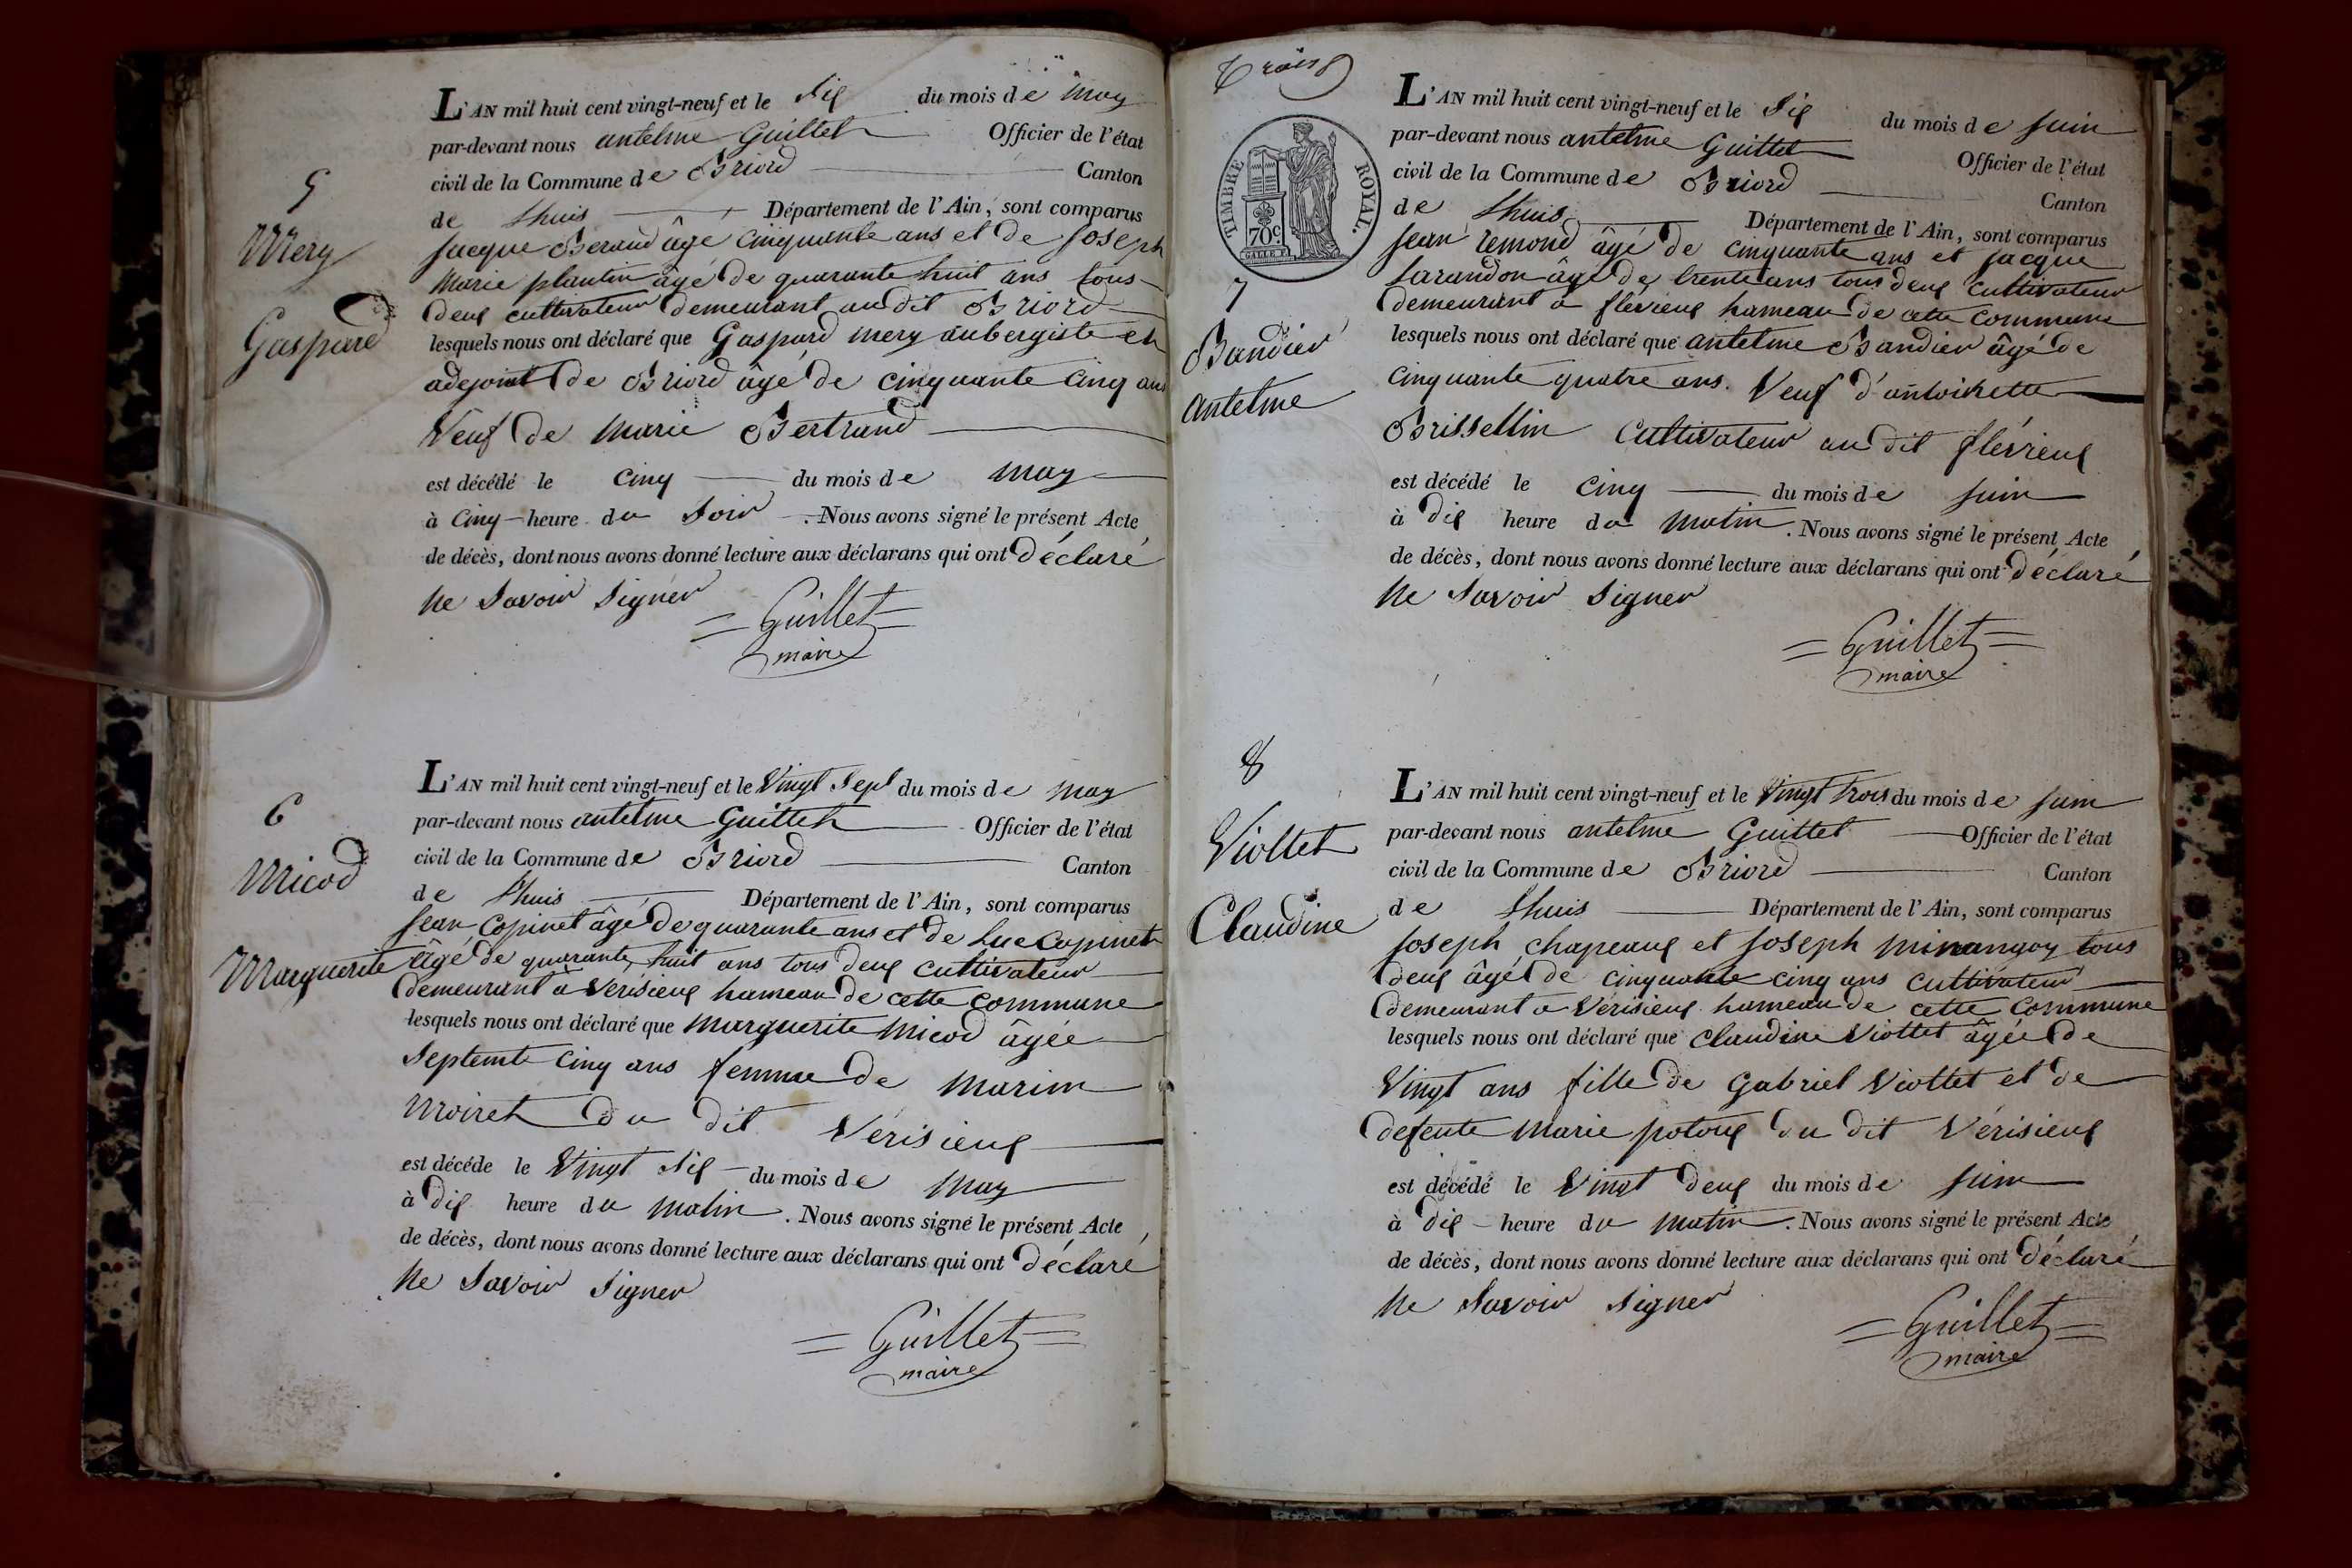 5
Mery
Gaspard
L'AN mil huit cent vingt-neuf et le Six du mois de may
par-devant nous antelme Guillet Officier de l'état
civil de la Commune de Briord Canton
de Lhuis Département de l'Ain, sont comparus
Jacque Beraud âgé cinquante ans et de Joseph
Marie plantin âgé de quarante huit ans tous
deux cultivateur demeurant au dit Briord
lesquels nous ont déclaré que Gaspard mery aubergiste et
adejoint de Briord âgé de cinquante cinq ans
Veuf de Marie Bertrand
est décédé le cinq du mois de may
à cinq heure du Soir. Nous avons signé le présent Acte
de décès, dont nous avons donné lecture aux déclarans qui ont déclaré
ne Savoir Signer
Guillet
maire
6
Micod
Marguerite
L'AN mil huit cent vingt-neuf et le Vingt Sept du mois de may
par-devant nous antelme Guillet Officier de l'état
civil de la Commune de Briord Canton
de Lhuis Département de l'Ain, sont comparus
Jean Copinet âgé de quarante ans et de Luc Copinet
âgé de quarante huit ans tous deux cultivateur
demeurant à Vérisieux hameau de cette commune
lesquels nous ont déclaré que Marguerite Micod âgée
Septente cinq ans femme de Marin
Moiret du dit Vérisieux
est décédé le Vingt Six du mois de may
à dix heure du matin. Nous avons signé le présent Acte
de décès, dont nous avons donné lecture aux déclarans qui ont déclaré
ne Savoir Signer
Guillet
maire
Trois
TIMBRE ROYAL.
70c
7
Bandier
antelme
L'AN mil huit cent vingt-neuf et le Six du mois de Juin
par-devant nous antelme Guillet Officier de l'état
civil de la Commune de Briord Canton
de Lhuis Département de l'Ain, sont comparus
Jean remond âgé de cinquante ans et Jacque
Sarandon âgé de trente ans tous deux cultivateur
demeurant a flevieux hameau de cette commune
lesquels nous ont déclaré que antelme Bandier âgé de
cinquante quatre ans. Veuf d'antoinette
Brissellin cultivateur au dit flévieux
est décédé le cinq du mois de Juin
à dix heure du matin. Nous avons signé le présent Acte
de décès, dont nous avons donné lecture aux déclarans qui ont déclaré
ne Savoir Signer
Guillet
maire
8
Viollet
Claudine
L'AN mil huit cent vingt-neuf et le Vingt trois du mois de Juin
par-devant nous antelme Guillet Officier de l'état
civil de la Commune de Briord Canton
de Lhuis Département de l'Ain, sont comparus
Joseph chapeaux et Joseph minangoy tous
deux âgé de cinquante cinq ans cultivateur
demeurant a Vérisieux hameau de cette commune
lesquels nous ont déclaré que Claudine Viollet âgée de
Vingt ans fille de Gabriel Viollet et de
defente Marie potoux du dit Vérisieux
est décédé le Vingt deux du mois de Juin
à dix heure du matin. Nous avons signé le présent Acte
de décès, dont nous avons donné lecture aux déclarans qui ont déclaré
ne Savoir Signer
Guillet
maire